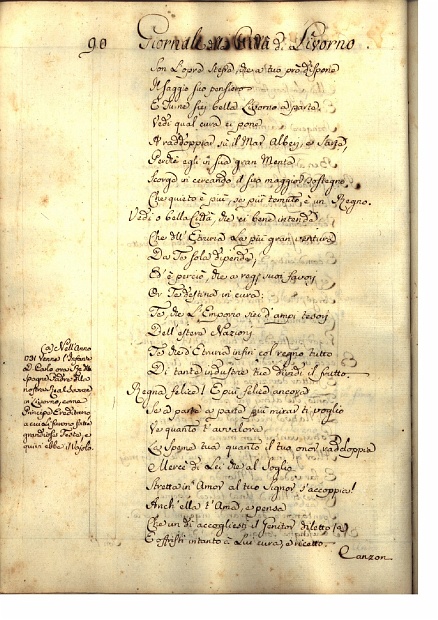 90 Giornale della Città di Livorno
Son l'opra stessa, che a tuo prò dispone
Il saggio suo pensiero.
E tu ne sei bella Livorno a parte.
Vedi qual cura ei pone
A raddoppiar sù il Mar Alberi, e Sarte,
Perchè egli in sua gran Mente
Scorge in cercando il suo maggior sostegno,
Che quieto è più, se più temuto, è un Regno.
Vedi o bella Città, che ei bene intende
Che dell' Etruria la più gran ventura
Da Te sola dipende,
Ed è perciò, che a regj suoi favori
Or Te destina in cura:
Te, che l'Emporio sei d'ampi tesori
Dell' estere Nazioni
Te che d'Etruria infin col regno tutto
Di tante industrie tue dividi il frutto.
Regna felice! E più felice ancora
Se a parte a parte più mirar ti voglio
Ve quanto t'avvalora
La Speme tua quanto il tuo onor raddoppia
Mercè di Lei che al Soglio
Stretta in Amor al tuo Signor s'accoppia!
Anch' ella t'Ama, e pensa
Che un dì accogliesti il Genitor diletto (a)
E offristi intanto à Lui cura, e ricetto.
Canzon.
(a) Nell'Anno
1731 Venne l'Infante
D. Carlo ora Rè di
Spagna Padre della
nostra Real Sovrana
in Livorno, come
Principe Ereditario
a cui si fecero
grandiose Feste, e
quivi ebbe il Vajolo.